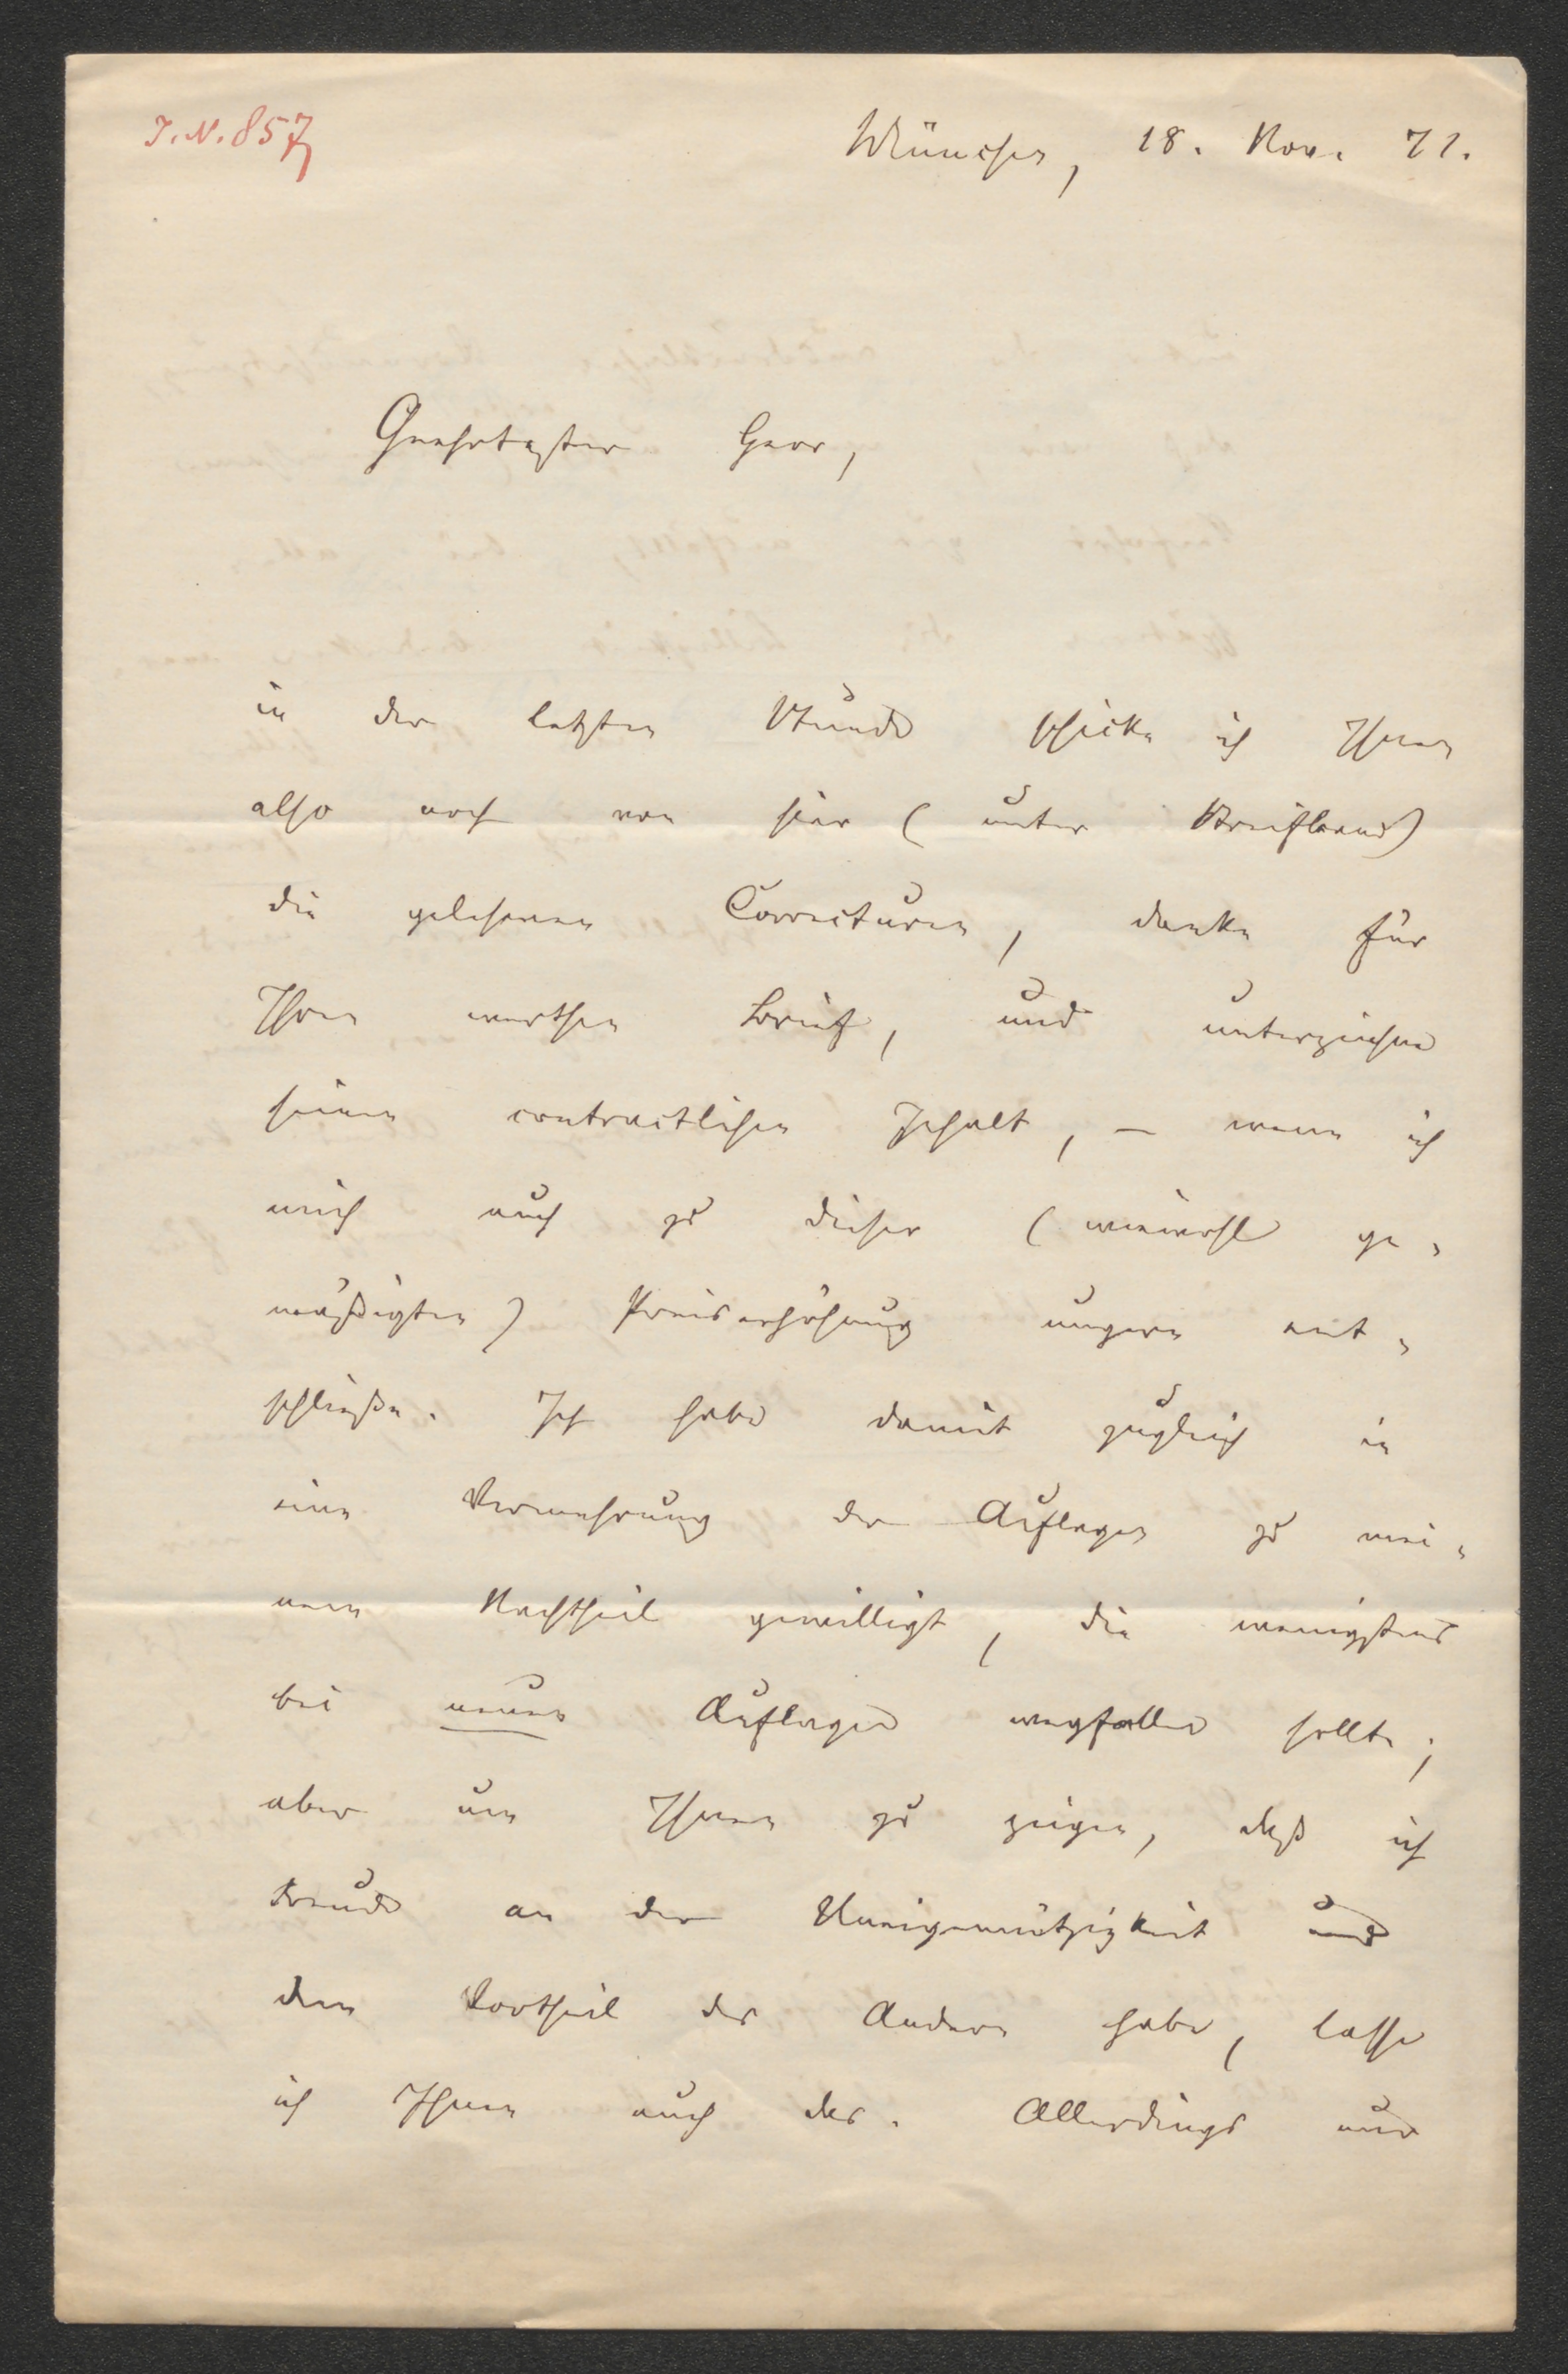 J.N. 857
München, 18. Nov. 71.
Geehrtester Herr,
in der letzten Stunde schicke ich Ihnen
also noch von hier (unter Streifband)
die gelesenen Correcturen, danke für
Ihren werthen Brief, und unterziehe
seinen contractlichen Gehalt, – wenn ich
mich auch zu dieser (wiewohl ge-
mäßigten) Preiserhöhung ungern ent-
schließe. Ich habe damit zugleich in
eine Vermehrung der Auflagen zu mei-
nem Nachtheil gewilligt, die wenigstens
bei neuen Auflagen wegfallen sollte;
aber um Ihnen zu zeigen, daß ich
Freude an der Uneigennützigkeit und
dem Vortheil des Andern habe, lasse
ich Ihnen auch das. Allerdings nur